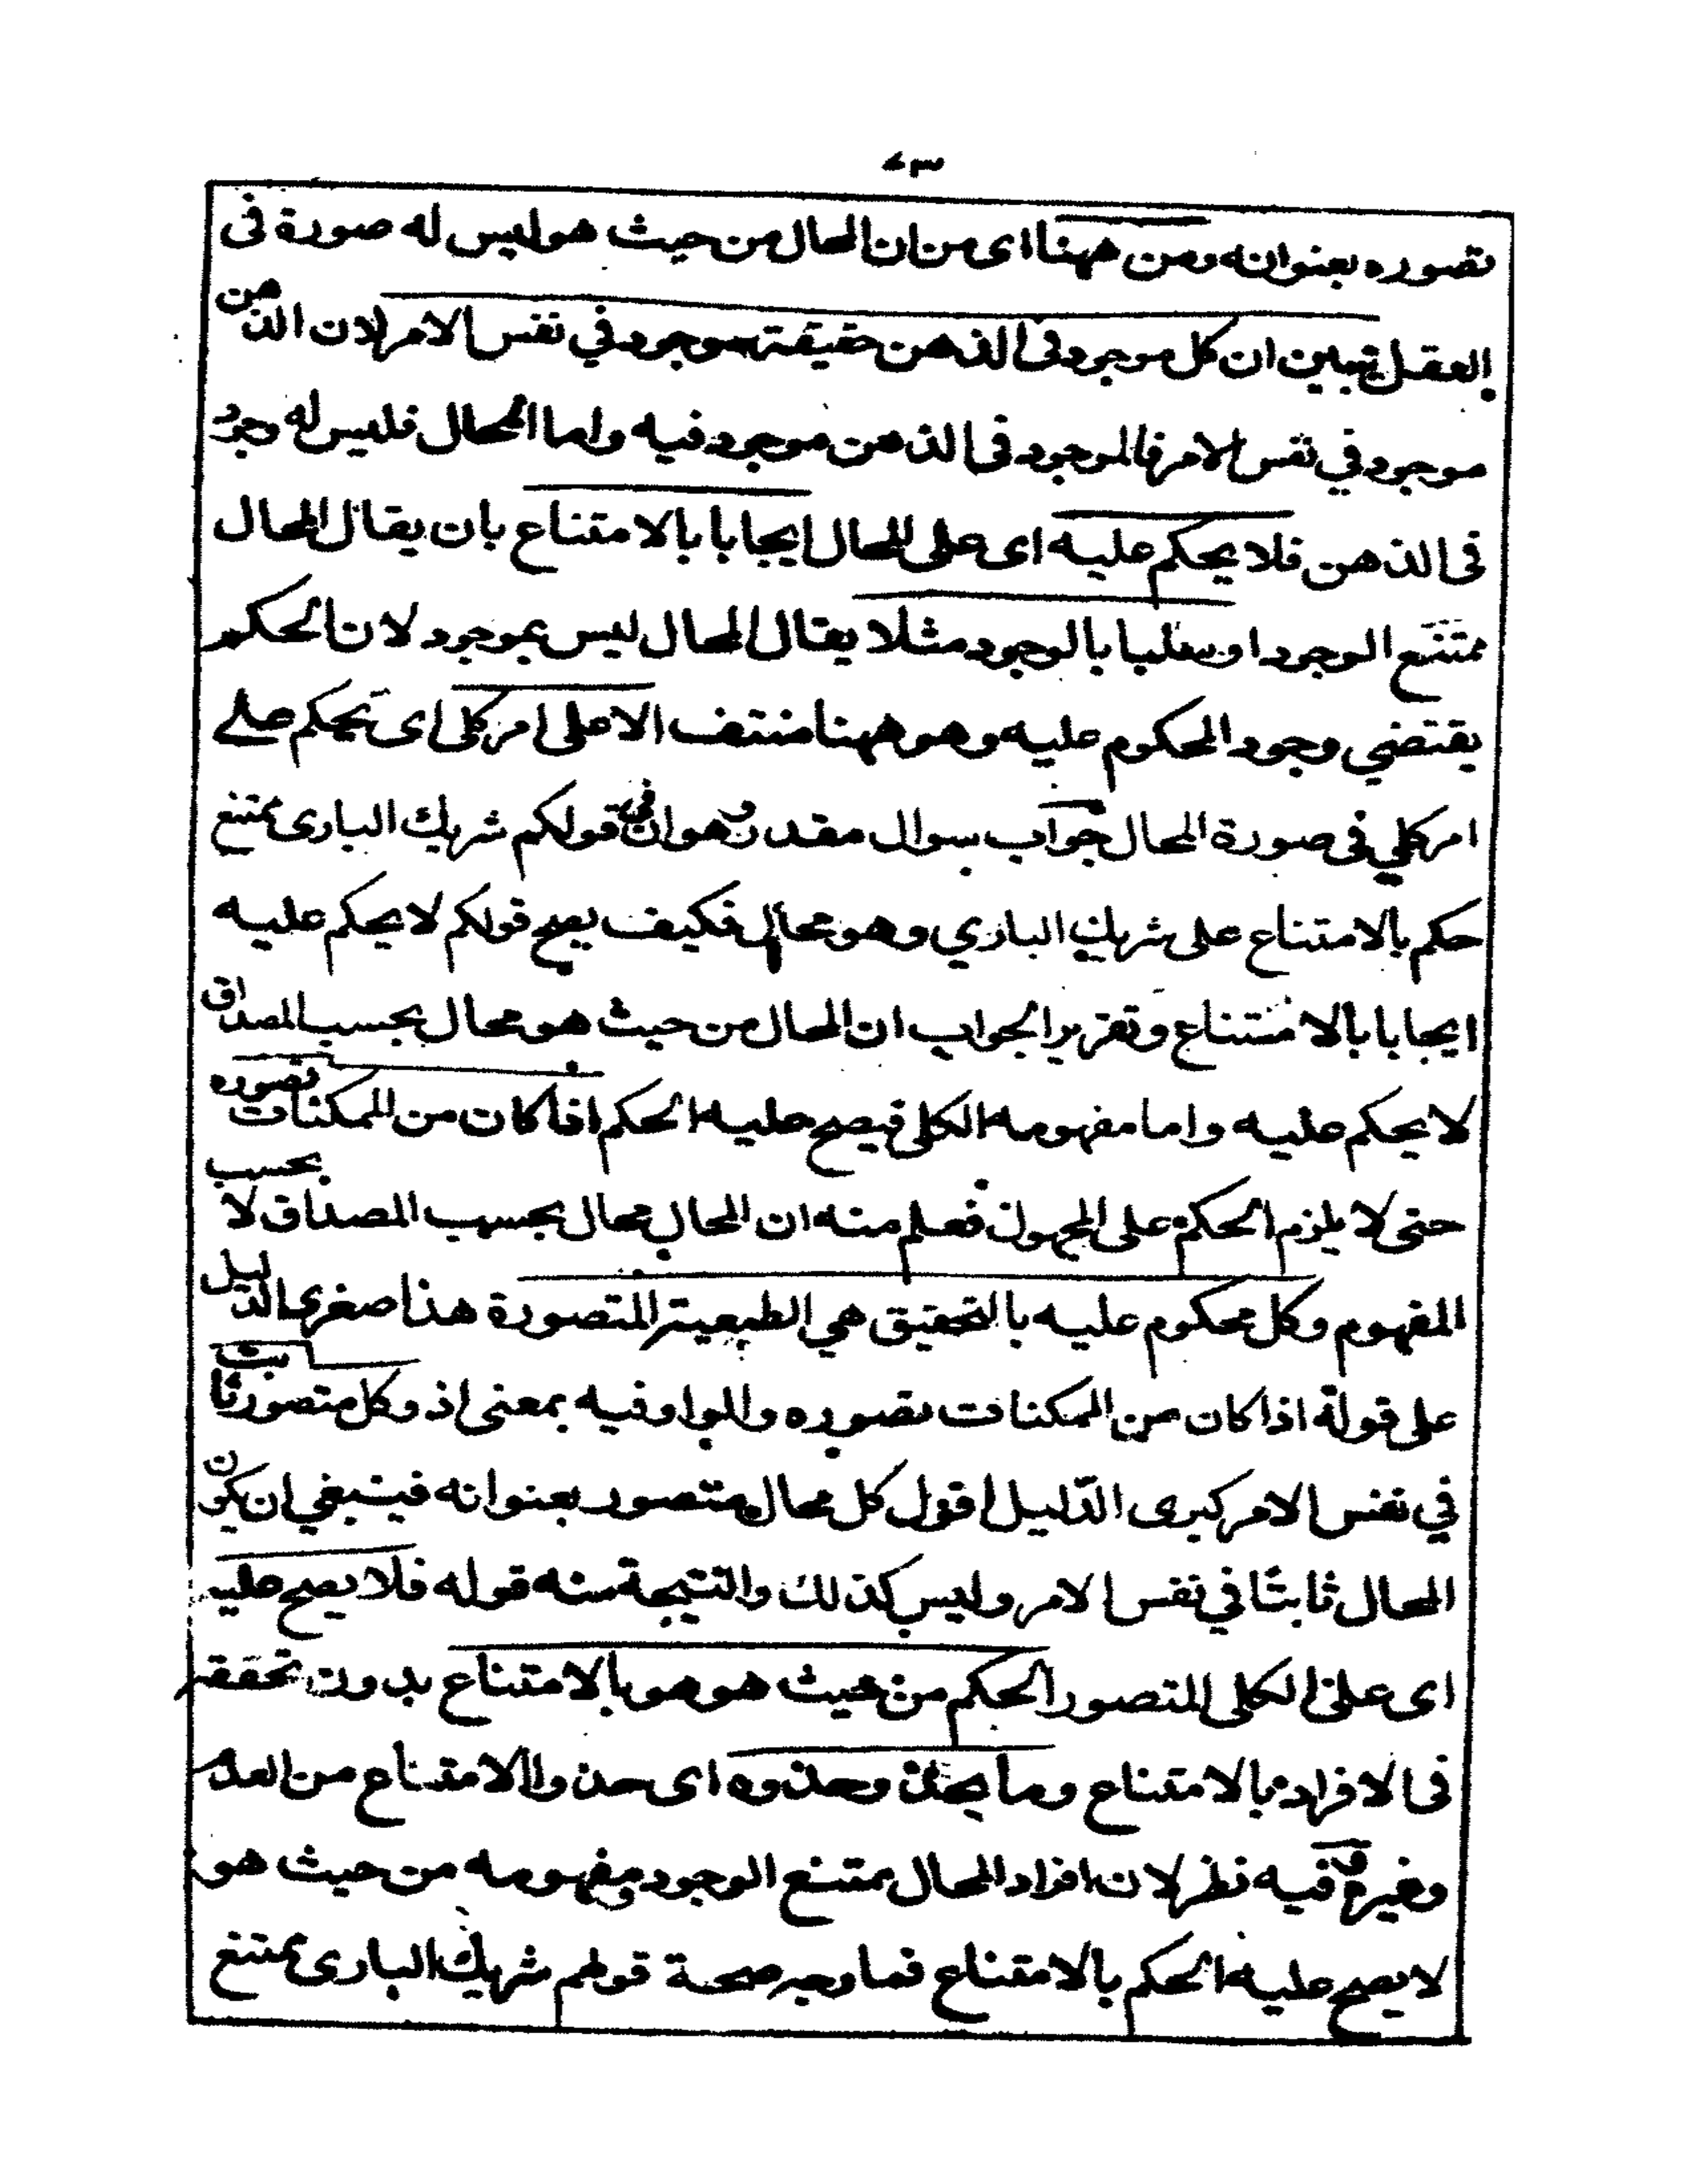 ٧٣
تصوره بعنوانه ومن ههنا اى من ان المحال من حيث هو ليس له صورة فى
العقل تبين ان كل موجود فى الذهن حقيقة موجود في نفس الامر لان الذهن
موجود في نفس الامر فالموجود فى الذهن موجود فيه واما المحال فليس له وجود
فى الذهن فلا يحكم عليه اى على المحال ايجابا بالامتناع بان يقال المحال
ممتنع الوجود او سلبا بالوجود مثلا يقال المحال ليس بموجود لان الحكم
يقتضي وجود المحكوم عليه وهو ههنا منتف الا على امر كلى اى يحكم على
امر كلي فى صورة المحال جواب سوال مقدر وهو ان فى قولكم شريك البارى ممتنع
حكم بالامتناع على شريك الباري وهو محال فكيف يصح قولكم لا يحكم عليه
ايجابا بالامتناع وتقرير الجواب ان المحال من حيث هو محال بحسب المصداق
لا يحكم عليه واما مفهومه الكلى فيصح عليه الحكم اذا كان من الممكنات تصوره
حتى لا يلزم الحكم على المجهول فعلم منه ان المحال محال بحسب المصداق لا بحسب
المفهوم وكل محكوم عليه بالتحقيق هي الطبعية المتصورة هذا صغرى الدليل
على قولة اذا كان من الممكنات تصوره والواو فيه بمعنى اذ وكل متصور ثابت
في نفس الامر كبرى الدّليل اقول كل محال متصور بعنوانه فينبغي ان يكون
المحال ثابتًا في نفس الامر وليس كذلك والنتيجة منه قوله فلا يصح عليه
اى على الكلى المتصور الحكم من حيث هو هو بالامتناع بدون تحققه
فى الافراد بالامتناع وما يحذو حذوه اى حذو الامتناع من العدم
وغيره فيه نظر لان افراد المحال ممتنع الوجود ومفهومه من حيث هو
لا يصح عليه الحكم بالامتناع فما وجه صحة قولهم شريك البارى ممتنع